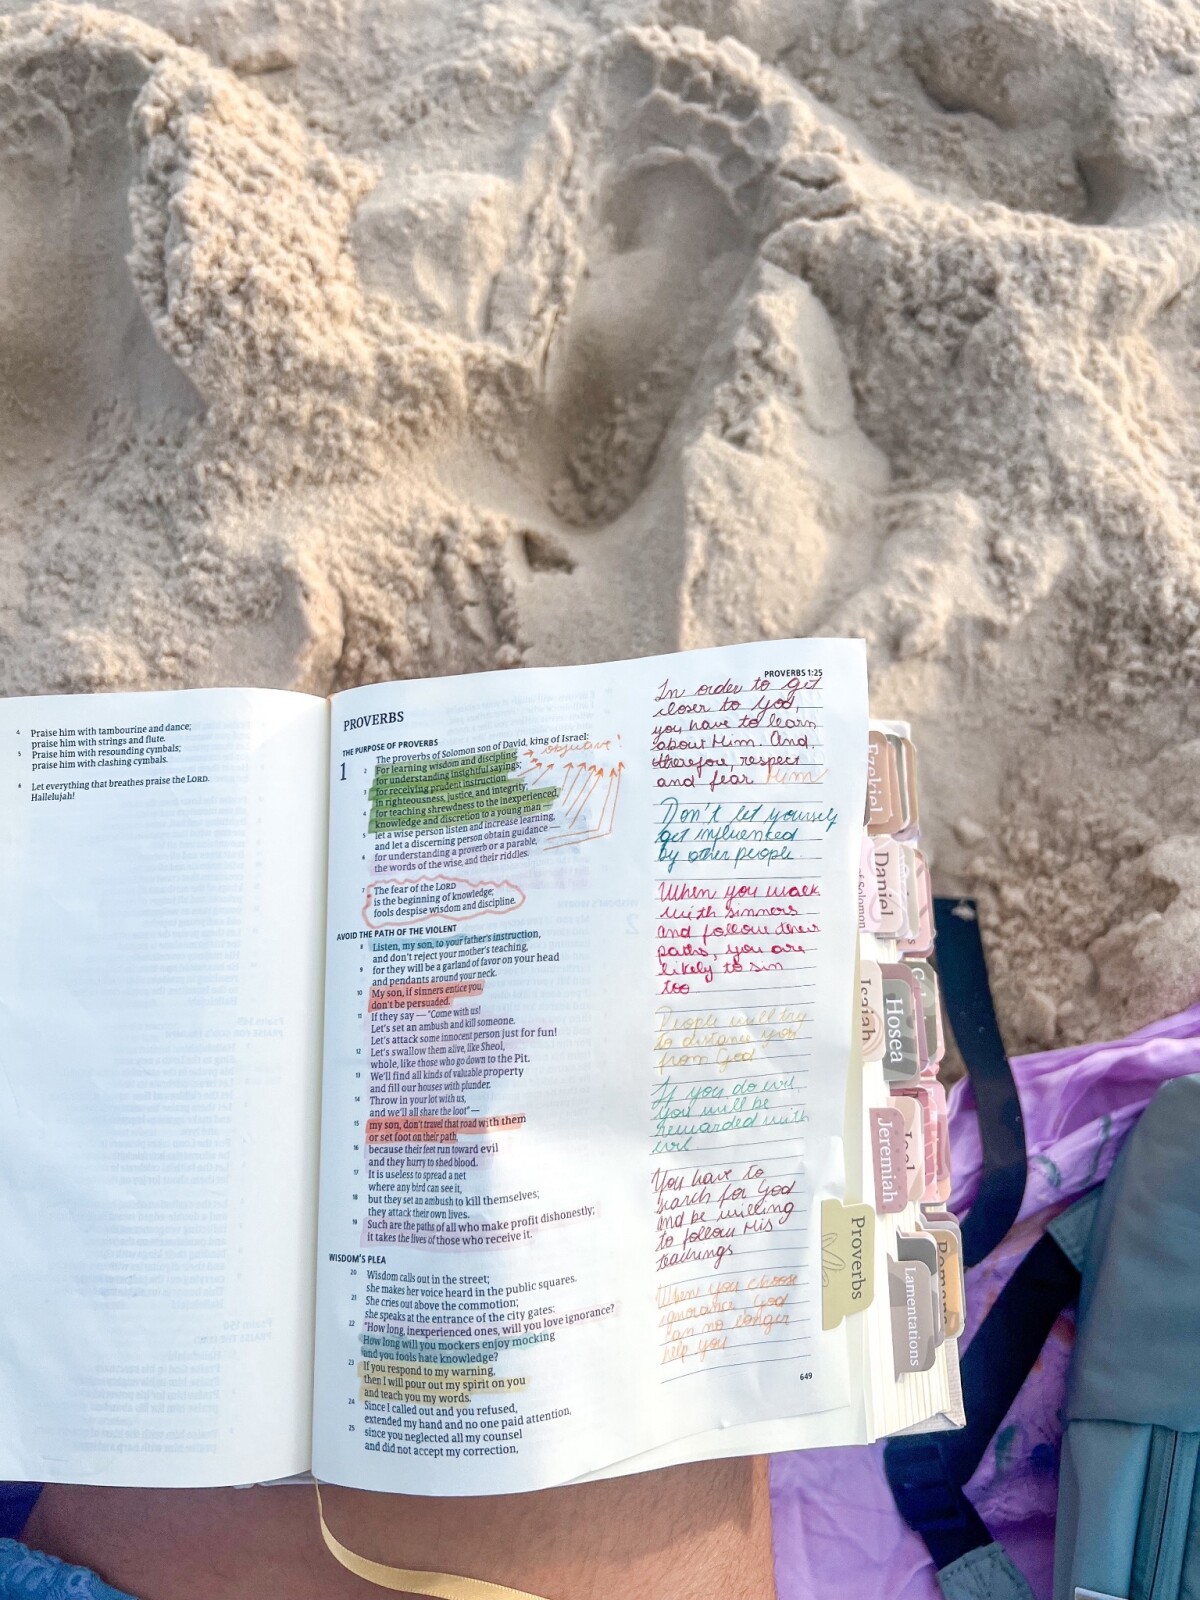 4 Praise him with tambourine and dance;
praise him with strings and flute.
5 Praise him with resounding cymbals;
praise him with clashing cymbals.
6 Let everything that breathes praise the LORD.
Hallelujah!
PROVERBS 1:25
PROVERBS
THE PURPOSE OF PROVERBS
1 The proverbs of Solomon son of David, king of Israel:
2 For learning wisdom and discipline;
for understanding insightful sayings;
3 for receiving prudent instruction
in righteousness, justice, and integrity;
4 for teaching shrewdness to the inexperienced,
knowledge and discretion to a young man —
5 let a wise person listen and increase learning,
and let a discerning person obtain guidance —
6 for understanding a proverb or a parable,
the words of the wise, and their riddles.
7 The fear of the LORD
is the beginning of knowledge;
fools despise wisdom and discipline.
AVOID THE PATH OF THE VIOLENT
8 Listen, my son, to your father's instruction,
and don't reject your mother's teaching,
9 for they will be a garland of favor on your head
and pendants around your neck.
10 My son, if sinners entice you,
don't be persuaded.
11 If they say — "Come with us!
Let's set an ambush and kill someone.
Let's attack some innocent person just for fun!
12 Let's swallow them alive, like Sheol,
whole, like those who go down to the Pit.
13 We'll find all kinds of valuable property
and fill our houses with plunder.
14 Throw in your lot with us,
and we'll all share the loot" —
15 my son, don't travel that road with them
or set foot on their path,
16 because their feet run toward evil
and they hurry to shed blood.
17 It is useless to spread a net
where any bird can see it,
18 but they set an ambush to kill themselves;
they attack their own lives.
19 Such are the paths of all who make profit dishonestly;
it takes the lives of those who receive it.
WISDOM'S PLEA
20 Wisdom calls out in the street;
she makes her voice heard in the public squares.
21 She cries out above the commotion;
she speaks at the entrance of the city gates:
22 "How long, inexperienced ones, will you love ignorance?
How long will you mockers enjoy mocking
and you fools hate knowledge?
23 If you respond to my warning,
then I will pour out my spirit on you
and teach you my words.
24 Since I called out and you refused,
extended my hand and no one paid attention,
25 since you neglected all my counsel
and did not accept my correction,
objective!
In order to get
closer to God,
you have to learn
about Him. And,
therefore, respect
and fear Him
Don't let yourself
get influenced
by other people
When you walk
with sinners
and follow their
paths, you are
likely to sin
too
People will try
to distance you
from God
If you do evil
you will be
rewarded with
evil
You have to
search for God
and be willing
to follow His
teachings
When you choose
ignorance God
can no longer
help you
649
Ezekiel
Daniel
of Solomon
Isaiah
Hosea
Joel
Jeremiah
Proverbs
Lamentations